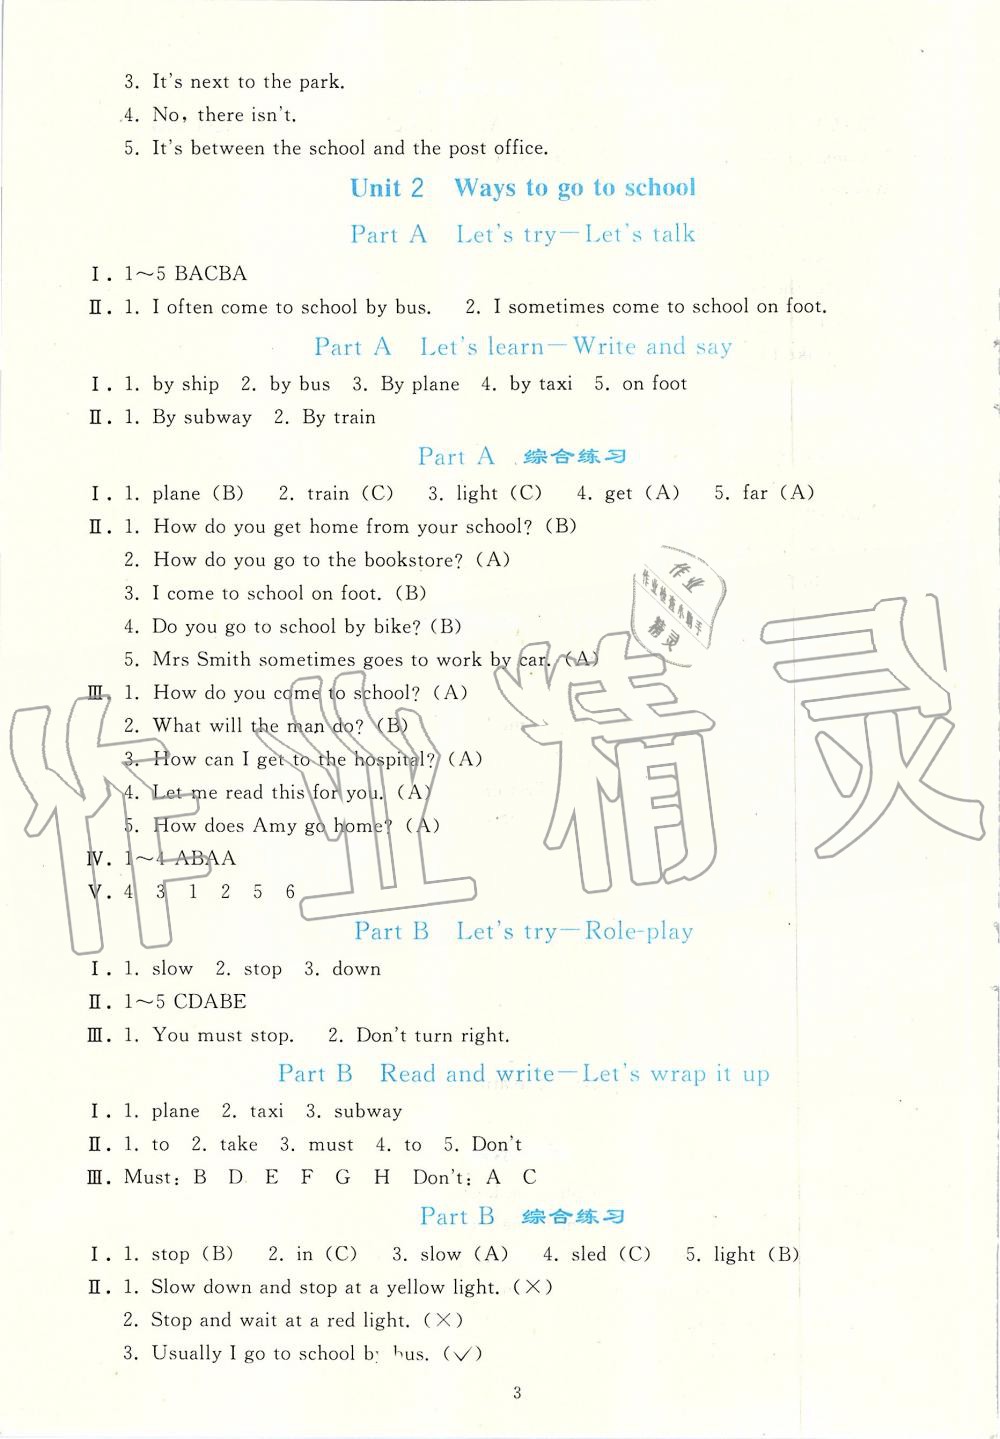 3. It's next to the park.
4. No, there isn't.
5. It's between the school and the post office.
Unit 2 Ways to go to school
Part A Let's try—Let's talk
Ⅰ. 1～5 BACBA
Ⅱ. 1. I often come to school by bus. 2. I sometimes come to school on foot.
Part A Let's learn—Write and say
Ⅰ. 1. by ship 2. by bus 3. By plane 4. by taxi 5. on foot
Ⅱ. 1. By subway 2. By train
Part A 综合练习
Ⅰ. 1. plane (B) 2. train (C) 3. light (C) 4. get (A) 5. far (A)
Ⅱ. 1. How do you get home from your school? (B)
2. How do you go to the bookstore? (A)
3. I come to school on foot. (B)
4. Do you go to school by bike? (B)
5. Mrs Smith sometimes goes to work by car. (A)
Ⅲ. 1. How do you come to school? (A)
2. What will the man do? (B)
3. How can I get to the hospital? (A)
4. Let me read this for you. (A)
5. How does Amy go home? (A)
Ⅳ. 1～4 ABAA
Ⅴ. 4 3 1 2 5 6
Part B Let's try—Role-play
Ⅰ. 1. slow 2. stop 3. down
Ⅱ. 1～5 CDABE
Ⅲ. 1. You must stop. 2. Don't turn right.
Part B Read and write—Let's wrap it up
Ⅰ. 1. plane 2. taxi 3. subway
Ⅱ. 1. to 2. take 3. must 4. to 5. Don't
Ⅲ. Must: B D E F G H Don't: A C
Part B 综合练习
Ⅰ. 1. stop (B) 2. in (C) 3. slow (A) 4. sled (C) 5. light (B)
Ⅱ. 1. Slow down and stop at a yellow light. (×)
2. Stop and wait at a red light. (×)
3. Usually I go to school by bus. (✓)
3
作业精灵
作业
作业检查小助手
精灵